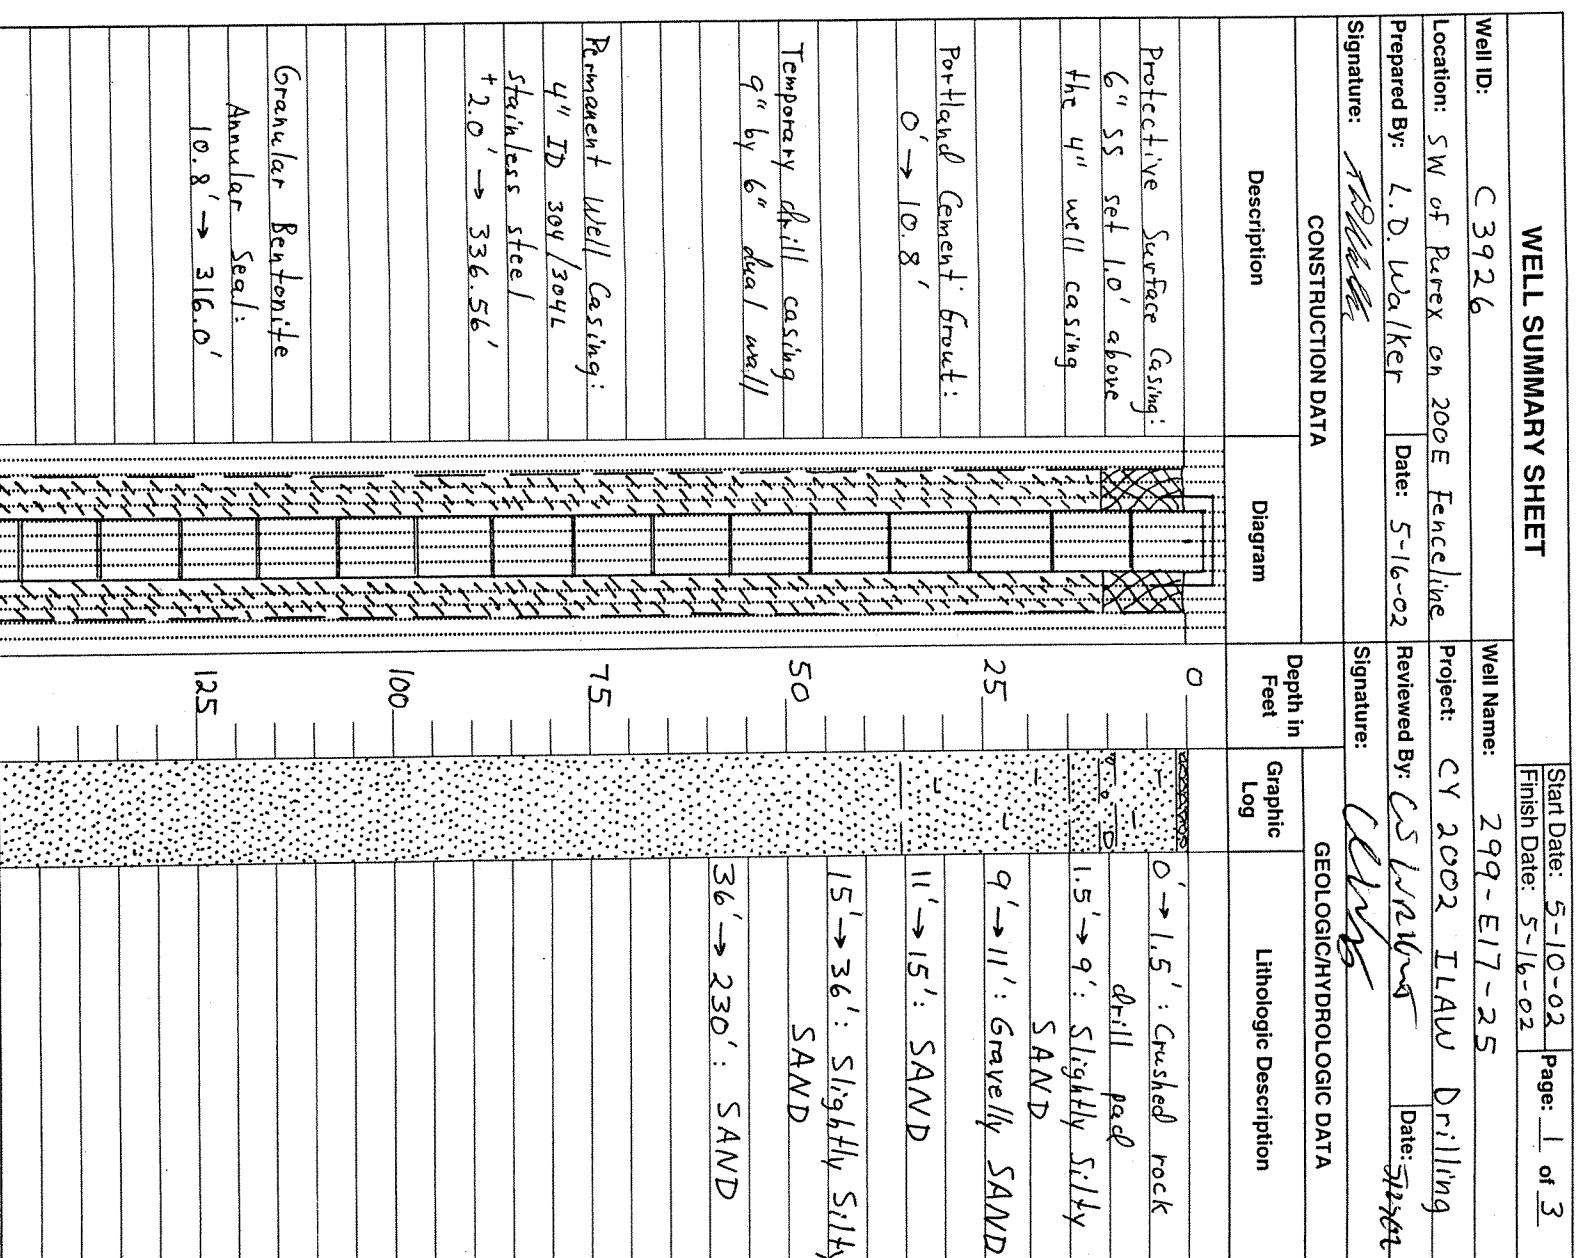 WELL SUMMARY SHEET
Start Date: 5-10-02
Finish Date: 5-16-02
Page: 1 of 3
Well ID: C3926
Well Name: 299-E17-25
Location: SW of Purex on 200E Fenceline
Project: CY 2002 ILAW Drilling
Prepared By: L.D. Walker
Date: 5-16-02
Reviewed By:
Date:
Signature:
Signature:
CONSTRUCTION DATA
GEOLOGIC/HYDROLOGIC DATA
Description
Diagram
Depth in
Feet
Graphic
Log
Lithologic Description
Protective Surface Casing:
6" SS set 1.0' above
the 4" well casing
Portland Cement Grout:
0' → 10.8'
Temporary drill casing
9" by 6" dual wall
Permanent Well Casing:
4" ID 304/304L
stainless steel
+2.0' → 336.56'
Granular Bentonite
Annular Seal:
10.8' → 316.0'
0
25
50
75
100
125
0' → 1.5': Crushed rock
drill pad
1.5' → 9': Slightly Silty
SAND
9' → 11': Gravelly SAND
11' → 15': SAND
15' → 36': Slightly Silty
SAND
36' → 230': SAND